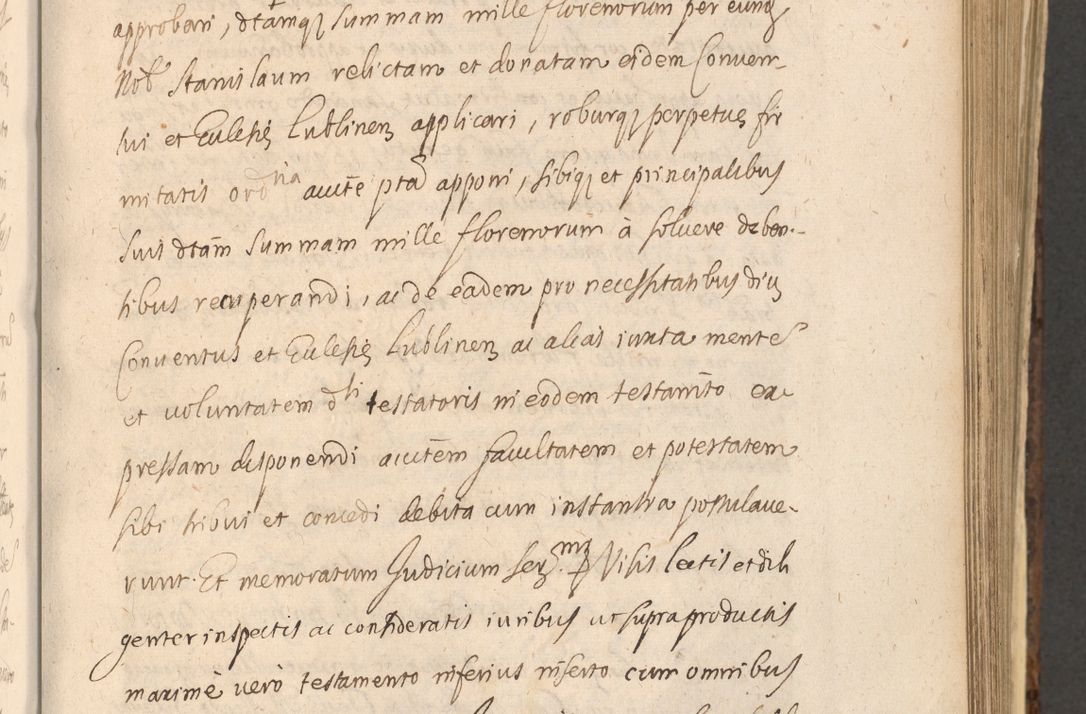 approbari, dtamq₃ summam mille florenorum per eund
Nob Stanislaum relictam et donatam eidem Conven-
tui et Ecclesię Lublinen applicari, roburq₃ perpetuę fir
mitatis ordria aucte ptã apponi, sibiq₃ et principalibus
suis dtam summam mille florenorum à solvere deben-
tibus recuperandi, ac de eadem pro necessitatibus dicti
Conventus et Ecclesię Lublinen ac alias iuxta mente
et voluntatem dti testatoris in eodem testamto ex
pressam disponendi auctem facultatem et potestatem
sibi tribui et concedi debita cum instantia postulave-
runt. Et memoratum Judicium Visis lectis et dili
genter inspectis ac consideratis iuribus ut supra productis
maximè verò testamento inferius inserto cum omnibus